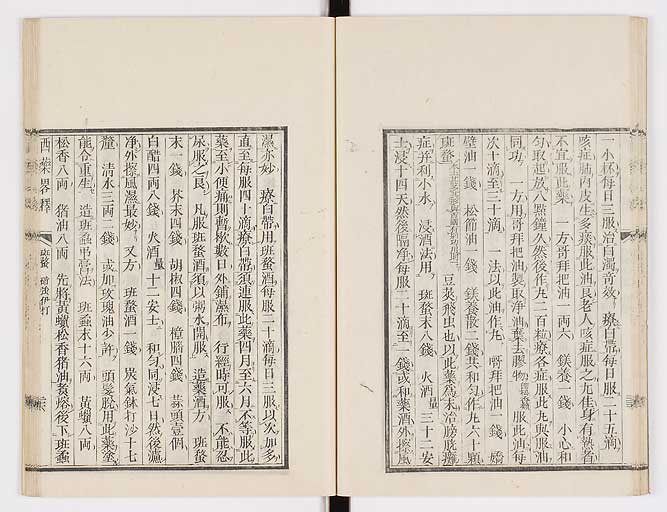 一小杯每日三服治白濁奇效　療白帶每日服二十五滴
咳症肺內皮生多痰服此油良老人咳症服之尤佳身有熱者
不宜服此藥　一方哥拜把油一兩六　鎂養一錢　小心和
勻取起放八點鐘久然後作九二百粒療各症服此九與服油
同功　一方用哥拜把油製取淨油棄去膠物　服此油每
次十滴至三十滴　一法以此油作丸　哥拜把油一錢　嬌
壁油一錢　松節油一錢　鎂養散二錢共和勻作九六十顆
班蝥　荳莢飛虫也以此藥為末治筋骼癱
症并利小水　浸酒法用　班蝥末八錢　火酒量三十二安
士浸十四天然後隔淨每服二十滴至一錢或和藥酒外擦風
濕亦妙　療白帶用班蝥酒每服二十滴每日三服以次加多
直至每服四十滴療白帶須連服此藥四月至六月不等服此
藥至小便痛則暫歇數日外鋪濕布　行經時可服　不能忍
尿服之良　凡服班蝥酒須以粥水開服　造藥酒方　班蝥
末一錢　芥末四錢　胡椒四錢　樟腦四錢　蒜頭壹個
白醋四兩八錢　火酒量十二安士　和勻同浸七日然後瀘
淨外擦風濕最妙　又方　班蝥酒一錢　炭氣𨥤打沙十七
釐　清水三兩一錢　或加玫瑰油少許　頭髮脫用此藥塗
能令重生　造班蝥弔膏法　班蝥末十六兩　黃蠟八兩
松香八兩　猪油八兩　先將黃蠟松香猪油煑溶後下班蝥
西藥畧釋　班蝥